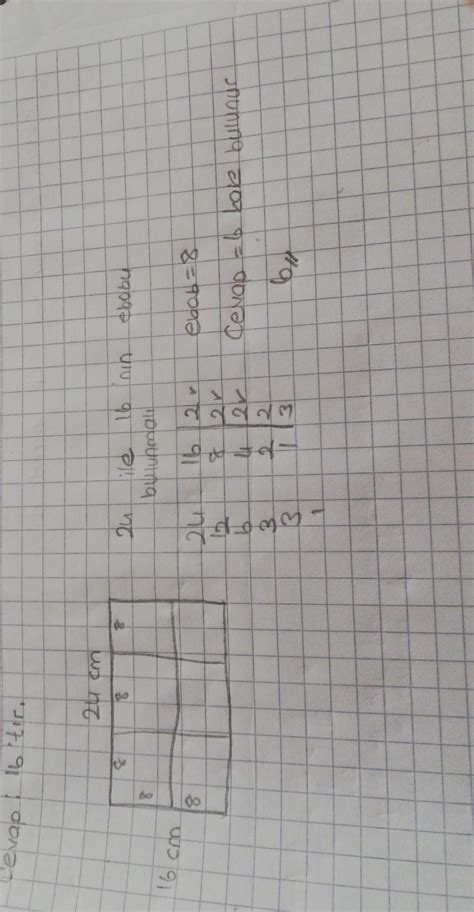 Cevap: 16'tır.
24 cm
8 8 8
8
8
16 cm
24 ile 16'nın ebobu
bulunmalı
24 16 2✓
12 8 2✓
6 4 2✓
3 2 2
3 1 3
1
ebob=8
Cevap = 6 kare bulunur
6//